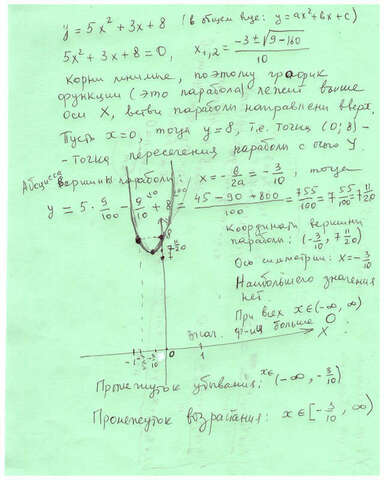 y = 5x² + 3x + 8 (в общем виде: y = ax² + bx + c)
5x² + 3x + 8 = 0, x₁,₂ = (-3 ± √(9 - 160))/10
корни мнимые, поэтому график
функции (это парабола) лежит выше
оси X, ветви параболы направлены вверх.
Пусть x = 0, тогда y = 8, т.е. точка (0; 8) -
- точка пересечения параболы с осью Y
Абсцисса вершины параболы: x = -b/2a = -3/10, тогда
y = 5 · 9/100 - 9/10 + 8 = (45 - 90 + 800)/100 = 755/100 = 7 55/100 = 7 11/20
Координаты вершины
параболы: (-3/10, 7 11/20)
Ось симметрии: x = -3/10
Наибольшего значения
нет
При всех x ∈ (-∞, ∞)
знач. ф-ии больше 0
7 11/20
8
-1 -3/5 -3/10 0 1 X
Промежуток убывания: x ∈ (-∞, -3/10)
Промежуток возрастания: x ∈ [-3/10, ∞)